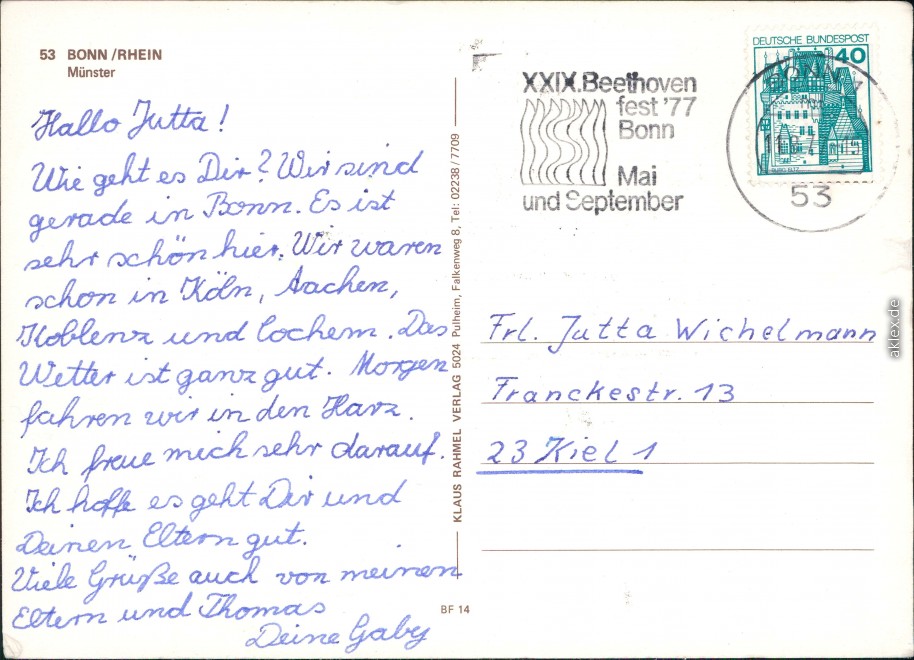 53 BONN/RHEIN
Münster
Hallo Jutta!
Wie geht es Dir? Wir sind
gerade in Bonn. Es ist
sehr schön hier. Wir waren
schon in Köln, Aachen,
Koblenz und Cochem. Das
Wetter ist ganz gut. Morgen
fahren wir in den Harz.
Ich freue mich sehr darauf.
Ich hoffe es geht Dir und
Deinen Eltern gut.
Viele Grüße auch von meinen
Eltern und Thomas
Deine Gaby
KLAUS RAHMEL VERLAG 5024 Pulheim, Falkenweg 8, Tel: 02238/7709
BF 14
XXIX.Beethoven
fest '77
Bonn
Mai
und September
DEUTSCHE BUNDESPOST
40
BURG ELTZ
BONN 1
53
Frl. Jutta Wichelmann
Franckestr. 13
23 Kiel 1
aklex.de